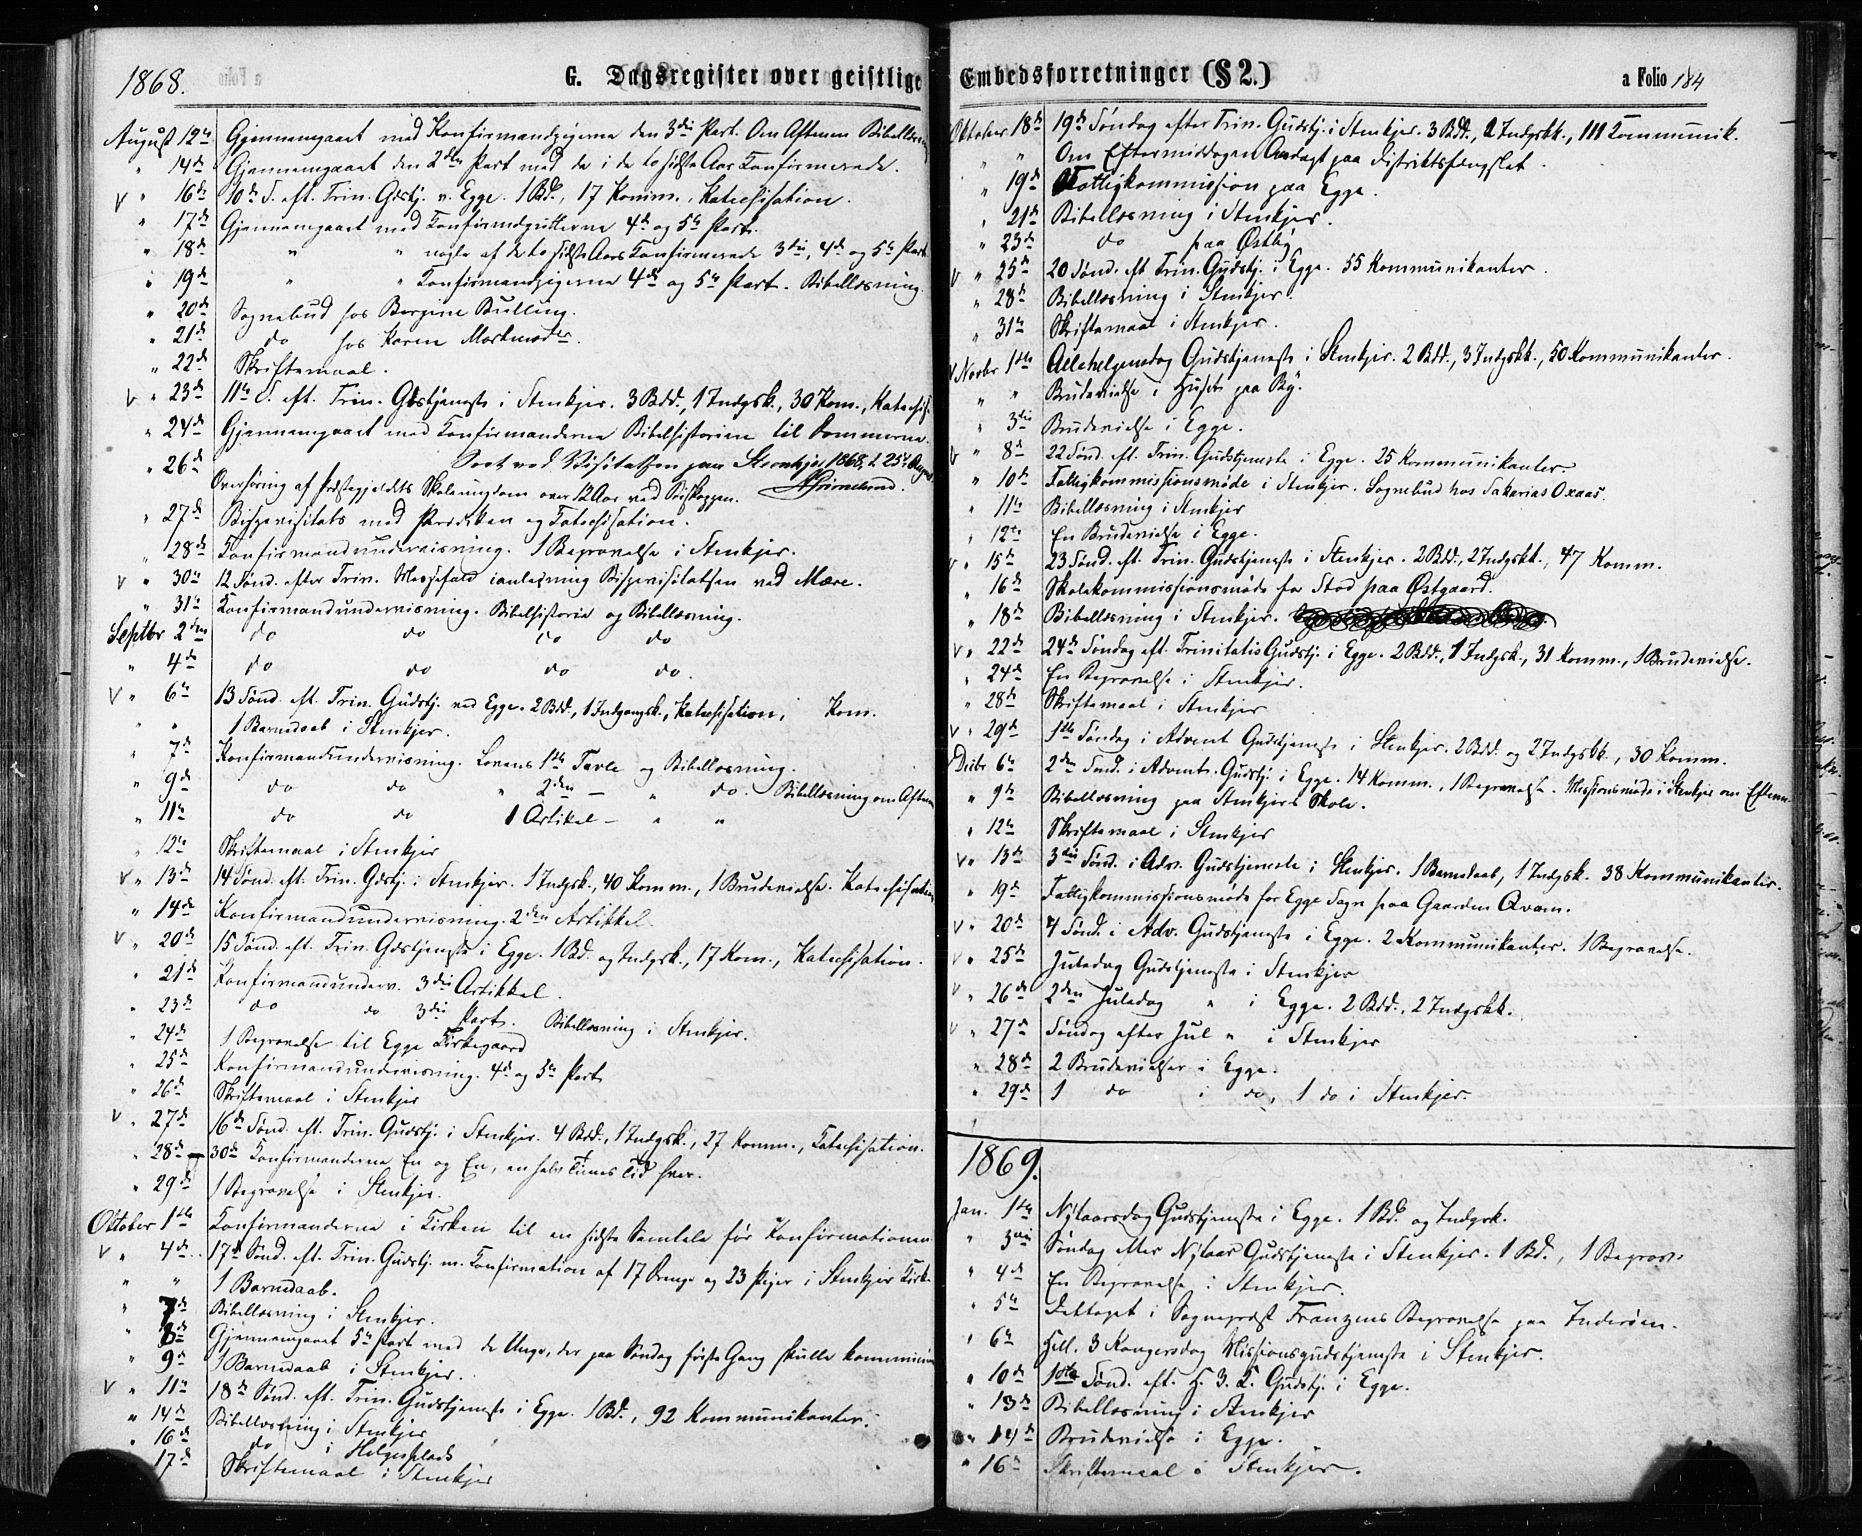 1868.
G. Dagsregister over geistlige
August 12te Gjennemgaaet med Konfirmandpigerne den 3die Part. Om Aftenen Bibellæsning
" 14de Gjennemgaaet den 2den Part med de i de to sidste Aar Konfirmerede.
V " 16de 10de S. eft. Trin. Gdstj. v. Egge. 1 Bd., 17 Komm., Katechisation.
" 17de Gjennemgaaet med Konfirmdgutterne 4de og 5te Part.
" 18de " " nogle af de to sidste Aars Konfirmerede 3die, 4de og 5te Part
" 19de " " Konfirmandpigerne 4de og 5te Part. Bibellæsning.
" 20de Sognebud hos Bergine Bulling.
" 21de do hos Karen
" 22de Skriftemaal.
V " 23de 11te S. eft. Trin. Gdstjeneste i Stenkjer. 3 Bdd., 1 Indgsk., 30 Kom., Katechis.
" 24de Gjennemgaaet med Konfirmanderne Bibelhistorien til Dommerne.
Seet ved Visitatsen paa Steenkjer 1868, d. 25de August
" 26de Overhøring af Præstegjeldets Skoleungdom over 12 Aar ved Biskoppen. AGrimelund.
" 27de Bispevisitats med Prædiken og Katechisation.
" 28de Konfirmandundervisning. 1 Begravelse i Stenkjer.
V " 30te 12 Sønd. efter Trin. Messefald i anledning Bispevisitatsen ved Mære.
" 31te Konfirmandundervisning. Bibelhistorie og Bibellæsning.
Septbr 2den do do do do
" 4de do do do do.
V " 6te 13 Sønd. eft. Trin. Gudstj. ved Egge. 2 Bdd., 1 Indgangsk., Katechisation, Kom.
" " 1 Barnedaab i Stenkjer.
" 7de Konfirmandundervisning. Lovens 1ste Tavle og Bibellæsning.
" 9de do do " 2den — " do. Bibellæsning om Aftenen
" 11te do do 1 Artikel — " "
" 12te Skriftemaal i Stenkjer
V " 13de 14 Sønd. eft. Trin. Gdstj. i Stenkjer. 1 Indgsk., 40 Komm., 1 Brudevielse. Katechisation
" 14de Konfirmandundervisning. 2den Artikkel.
V " 20de 15 Sønd. eft. Trin. Gdstjeneste i Egge. 1 Bd. og Indgsk., 17 Kom., Katechisation.
" 21de Konfirmandunderv. 3die Artikkel.
" 23de do do 3die Part. Bibellæsning i Stenkjer.
" 24de 1 Begravelse til Egge Kirkegaard
" 25de Konfirmandundervisning. 4de og 5te Part
" 26de Skriftemaal i Stenkjer
V " 27de 16de Sønd. eft. Trin. Gudstj. i Stenkjer. 4 Bdd., 1 Indgsk., 27 Komm., Katechisation.
" 28de — 30de Konfirmanderne En og En, en halv Times Tid hver.
" 29de 1 Begravelse i Stenkjer.
Oktober 1ste Konfirmanderne i Kirken til en sidste Samtale før Konfirmationen
V " 4de 17de Sønd. eft. Trin. Gudstj. m. Konfirmation af 17 Drenge og 23 Piger i Stenkjer Kirke.
" " 1 Barnedaab.
" 7de Bibellæsning i Stenkjer.
" 8de Gjennemgaaet 5te Part med de Unge, der paa Søndag første Gang skulle kommunicere
" 9de 1 Barnedaab i Stenkjer.
V " 11te 18de Sønd. eft. Trin. Gudstjeneste i Egge. 1 Bd., 92 Kommunikanter.
" 14de Bibellæsning i Stenkjer
" 16de do i Helgesplads
" 17de Skriftemaal i Stenkjer
Embedsforretninger (§ 2.)
a Folio 184
Oktober 18de 19de Søndag efter Trin. Gudstj. i Stenkjer. 3 Bdd., 2 Indgskk., 111 Kommunik.
" " Om Eftermiddagen Andagt paa Distriktsfængslet.
" 19de Fattigkommission paa Egge.
" 21de Bibellæsning i Stenkjer.
" 23de do paa Østby
V " 25de 20 Sønd. eft Trin. Gudstj. i Egge. 55 Kommunikanter.
" 28de Bibellæsning i Stenkjer.
" 31te Skriftemaal i Stenkjer.
V Novbr 1ste Allehelgensdag Gudstjeneste i Stenkjer. 2 Bdd., 3 Indgskk., 50 Kommunikanter.
" " Brudevielse i Huset paa By.
" 3die Brudevielse i Egge.
V " 8de 22 Sønd. eft. Trin. Gudstjeneste i Egge. 25 Kommunikanter
" 10de Fattigkommissionsmøde i Stenkjer. Sognebud hos Sakarias Oxaas.
" 11te Bibellæsning i Stenkjer
" 12te En Brudevielse i Egge.
V " 15de 23 Sønd. eft. Trin. Gudstjeneste i Stenkjer. 2 Bdd., 2 Indgskk., 47 Komm.
" 16de Skolekommissionsmøde for Stod paa Østgaard.
" 18de Bibellæsning i Stenkjer.
V " 22de 24de Søndag eft. Trinitatis Gudstj. i Egge. 2 Bdd., 1 Indgsk., 31 Komm., 1 Brudevielse.
" 24de En Begravelse i Stenkjer.
" 28de Skriftemaal i Stenkjer
V " 29de 1ste Søndag i Advent Gudstjeneste i Stenkjer. 2 Bdd. og 2 Indgskk., 30 Komm.
V Decbr 6te 2den Sønd. i Advent. Gudstj. i Egge. 14 Komm., 1 Begravelse. Missionsmøde i Stenkjer om Efterm.
" 9de Bibellæsning paa Stenkjers Skole.
" 12te Skriftemaal i Stenkjer
V " 13de 3die Sønd. i Adv. Gudstjeneste i Stenkjer. 1 Barnedaab, 1 Indgsk. 38 Kommunikanter.
" 19de Fattigkommissionsmøde for Egge Sogn paa Gaarden Qvam.
V " 20de 4 Sønd. i Adv. Gudstjeneste i Egge. 2 Kommunikanter. 1 Begravelse.
V " 25de Juledag Gudstjeneste i Stenkjer
V " 26de 2den Juledag " i Egge. 2 Bdd., 2 Indgskk.
V " 27de Søndag efter Jul " i Stenkjer
" 28de 2 Brudevielser i Egge.
" 29de 1 do i do, 1 do i Stenkjer.
1869.
Jan. 1ste Nytaarsdag Gudstjeneste i Egge. 1 Bd. og Indgsk.
" 3die Søndag efter Nytaar Gudstjeneste i Stenkjer. 1 Bd., 1 Begrav.
" 4de En Begravelse i Stenkjer.
" 5te Deltaget i Sogneprest Franzens Begravelse paa Inderøen.
" 6te Hell. 3 Kongersdag Missionsgudstjeneste i Stenkjer.
" 10de 1ste Sønd. eft. H. 3. K. Gudstj. i Egge.
" 13de Bibellæsning i Stenkjer
" 14de Brudevielse i Egge.
" 16de Skriftemaal i Stenkjer.